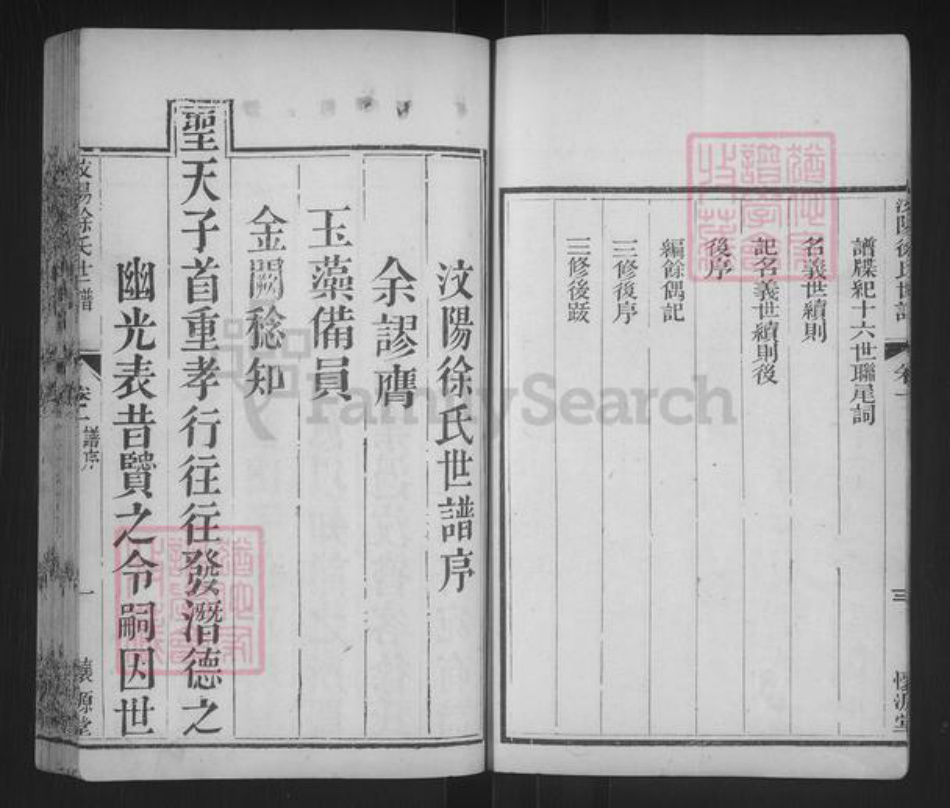 譜牒紀十六世聯尾詞
名義世續則
記名義世續則後
後序
編餘偶記
三修後序
三修後跋
三
汶陽徐氏世譜序
余謬膺
玉藻備員
金闕稔知
聖天子首重孝行往往發潛德之
幽光表昔賢之令嗣因世
汶陽徐氏世譜
譜序
一
FamilySearch